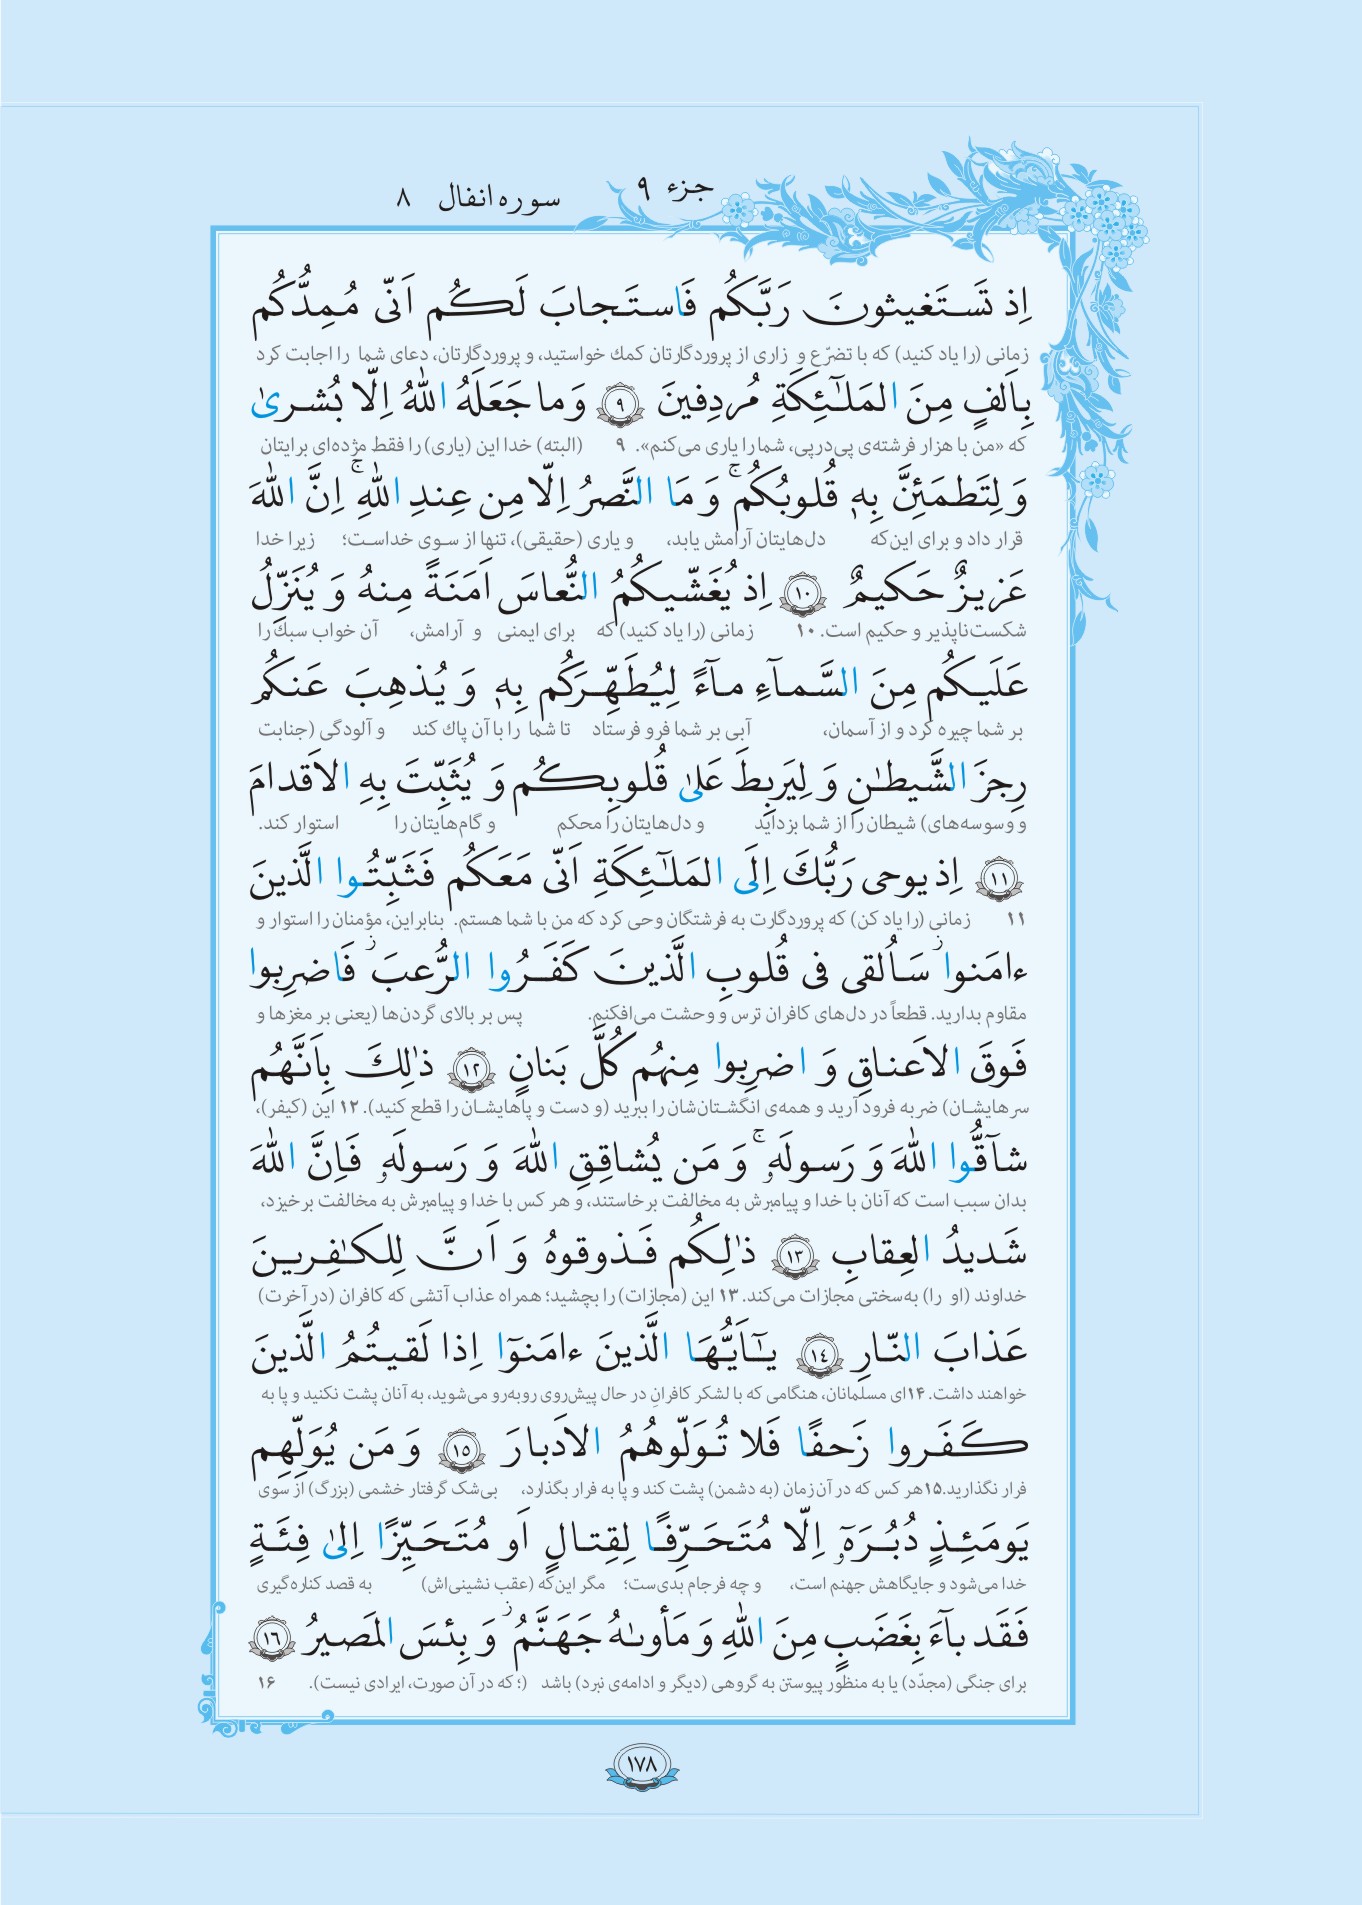 جزء ۹
سوره انفال ۸
اِذ تَستَغیثونَ رَبَّکُم فَاستَجابَ لَکُم اَنّی مُمِدُّکُم
زمانی (را یاد کنید) که با تضرّع و زاری از پروردگارتان کمك خواستید، و پروردگارتان، دعای شما را اجابت کرد
بِاَلفٍ مِنَ المَلٰٓئِکَةِ مُردِفینَ ﴿۹﴾ وَما جَعَلَهُ اللّٰهُ اِلّا بُشریٰ
که «من با هزار فرشته‌ی پی‌درپی، شما را یاری می‌کنم». ۹ (البته) خدا این (یاری) را فقط مژده‌ای برایتان
وَ لِتَطمَئِنَّ بِهٖ قُلوبُکُمۚ وَ مَا النَّصرُ اِلّا مِن عِندِ اللّٰهِۚ اِنَّ اللّٰهَ
قرار داد و برای این‌که دل‌هایتان آرامش یابد، و یاری (حقیقی)، تنها از سوی خداست؛ زیرا خدا
عَزیزٌ حَکیمٌ ﴿۱۰﴾ اِذ یُغَشّیکُمُ النُّعاسَ اَمَنَةً مِنهُ وَ یُنَزِّلُ
شکست‌ناپذیر و حکیم است. ۱۰ زمانی (را یاد کنید) که برای ایمنی و آرامش، آن خواب سبك را
عَلَیکُم مِنَ السَّمآءِ مآءً لِیُطَهِّرَکُم بِهٖ وَ یُذهِبَ عَنکُم
بر شما چیره کرد و از آسمان، آبی بر شما فرو فرستاد تا شما را با آن پاك کند و آلودگی (جنابت
رِجزَ الشَّیطٰنِ وَ لِیَربِطَ عَلیٰ قُلوبِکُم وَ یُثَبِّتَ بِهِ الاَقدامَ
و وسوسه‌های) شیطان را از شما بزداید و دل‌هایتان را محکم و گام‌هایتان را استوار کند.
﴿۱۱﴾ اِذ یوحی رَبُّكَ اِلَی المَلٰٓئِکَةِ اَنّی مَعَکُم فَثَبِّتُوا الَّذینَ
۱۱ زمانی (را یاد کن) که پروردگارت به فرشتگان وحی کرد که من با شما هستم. بنابراین، مؤمنان را استوار و
ءامَنواۚ سَاُلقی فی قُلوبِ الَّذینَ کَفَرُوا الرُّعبَۚ فَاضرِبوا
مقاوم بدارید. قطعاً در دل‌های کافران ترس و وحشت می‌افکنم. پس بر بالای گردن‌ها (یعنی بر مغزها و
فَوقَ الاَعناقِ وَ اضرِبوا مِنهُم کُلَّ بَنانٍ ﴿۱۲﴾ ذٰلِكَ بِاَنَّهُم
سرهایشان) ضربه فرود آرید و همه‌ی انگشتان‌شان را ببرید (و دست و پاهایشان را قطع کنید). ۱۲ این (کیفر)،
شآقُّوا اللّٰهَ وَ رَسولَهٗۚ وَ مَن یُشاقِقِ اللّٰهَ وَ رَسولَهٗ فَاِنَّ اللّٰهَ
بدان سبب است که آنان با خدا و پیامبرش به مخالفت برخاستند، و هر کس با خدا و پیامبرش به مخالفت برخیزد،
شَدیدُ العِقابِ ﴿۱۳﴾ ذٰلِکُم فَذوقوهُ وَ اَنَّ لِلکٰفِرینَ
خداوند (او را) به‌سختی مجازات می‌کند. ۱۳ این (مجازات) را بچشید؛ همراه عذاب آتشی که کافران (در آخرت)
عَذابَ النّارِ ﴿۱۴﴾ یٰٓاَیُّهَا الَّذینَ ءامَنوٓا اِذا لَقیتُمُ الَّذینَ
خواهند داشت. ۱۴ای مسلمانان، هنگامی که با لشکر کافران در حال پیش‌روی روبه‌رو می‌شوید، به آنان پشت نکنید و پا به
کَفَروا زَحفًا فَلا تُوَلّوهُمُ الاَدبارَ ﴿۱۵﴾ وَ مَن یُوَلِّهِم
فرار نگذارید.۱۵هر کس که در آن زمان (به دشمن) پشت کند و پا به فرار بگذارد، بی‌شک گرفتار خشمی (بزرگ) از سوی
یَومَئِذٍ دُبُرَهٗٓ اِلّا مُتَحَرِّفًا لِقِتالٍ اَو مُتَحَیِّزًا اِلیٰ فِئَةٍ
خدا می‌شود و جایگاهش جهنم است، و چه فرجام بدی‌ست؛ مگر این‌که (عقب نشینی‌اش) به قصد کناره‌گیری
فَقَد بآءَ بِغَضَبٍ مِنَ اللّٰهِ وَ مَأوىٰهُ جَهَنَّمُۚ وَ بِئسَ المَصیرُ ﴿۱۶﴾
برای جنگی (مجدّد) یا به منظور پیوستن به گروهی (دیگر و ادامه‌ی نبرد) باشد (؛ که در آن صورت، ایرادی نیست). ۱۶
۱۷۸